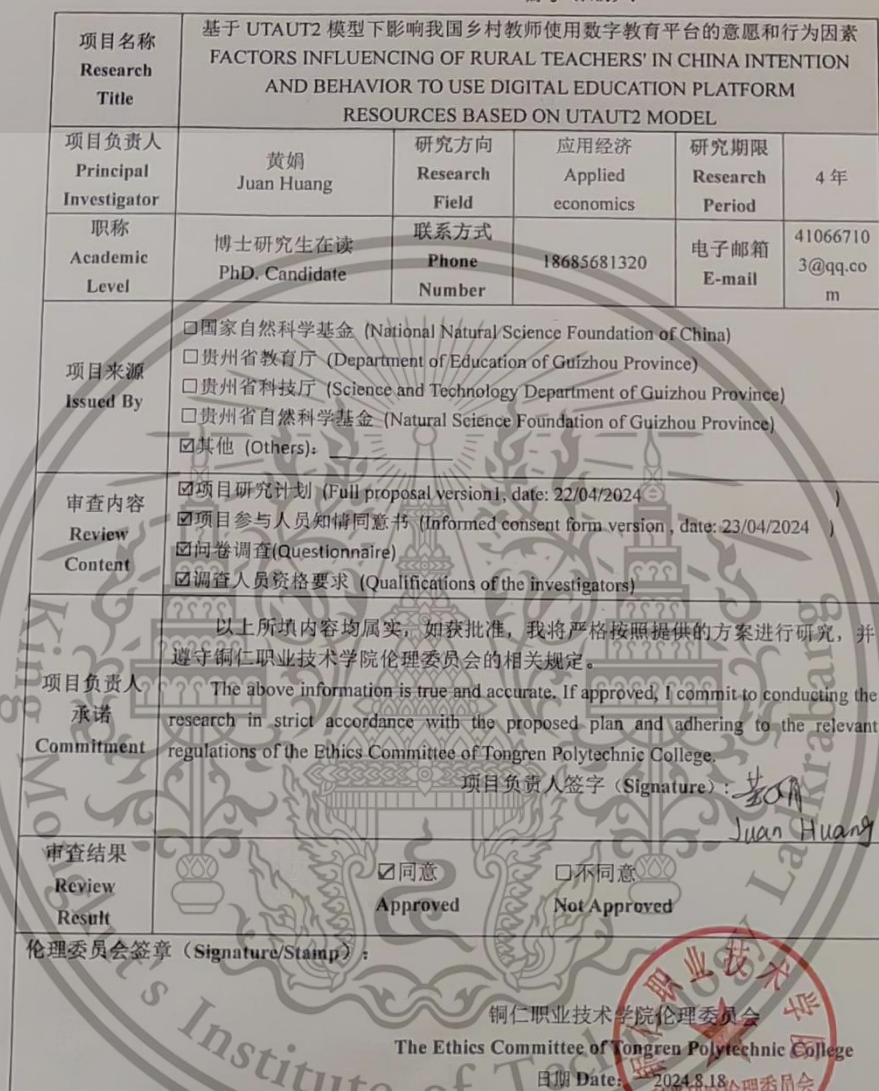 项目名称
Research
Title
基于 UTAUT2 模型下影响我国乡村教师使用数字教育平台的意愿和行为因素
FACTORS INFLUENCING OF RURAL TEACHERS' IN CHINA INTENTION
AND BEHAVIOR TO USE DIGITAL EDUCATION PLATFORM
RESOURCES BASED ON UTAUT2 MODEL
项目负责人
Principal
Investigator
黄娟
Juan Huang
研究方向
Research
Field
应用经济
Applied
economics
研究期限
Research
Period
4 年
职称
Academic
Level
博士研究生在读
PhD. Candidate
联系方式
Phone
Number
18685681320
电子邮箱
E-mail
41066710
3@qq.co
m
项目来源
Issued By
☐国家自然科学基金 (National Natural Science Foundation of China)
☐贵州省教育厅 (Department of Education of Guizhou Province)
☐贵州省科技厅 (Science and Technology Department of Guizhou Province)
☐贵州省自然科学基金 (Natural Science Foundation of Guizhou Province)
☑其他 (Others):
审查内容
Review
Content
☑项目研究计划 (Full proposal version1, date: 22/04/2024 )
☑项目参与人员知情同意书 (Informed consent form version , date: 23/04/2024 )
☑问卷调查(Questionnaire)
☑调查人员资格要求 (Qualifications of the investigators)
项目负责人
承诺
Commitment
以上所填内容均属实，如获批准，我将严格按照提供的方案进行研究，并
遵守铜仁职业技术学院伦理委员会的相关规定。
The above information is true and accurate. If approved, I commit to conducting the
research in strict accordance with the proposed plan and adhering to the relevant
regulations of the Ethics Committee of Tongren Polytechnic College.
项目负责人签字（Signature）: 黄娟
Juan Huang
审查结果
Review
Result
☑同意
Approved
☐不同意
Not Approved
伦理委员会签章（Signature/Stamp）:
铜仁职业技术学院伦理委员会
The Ethics Committee of Tongren Polytechnic College
日期 Date: 2024.8.18
职业技术学院
伦理委员会
King Mongkut's Institute of Technology Ladkrabang